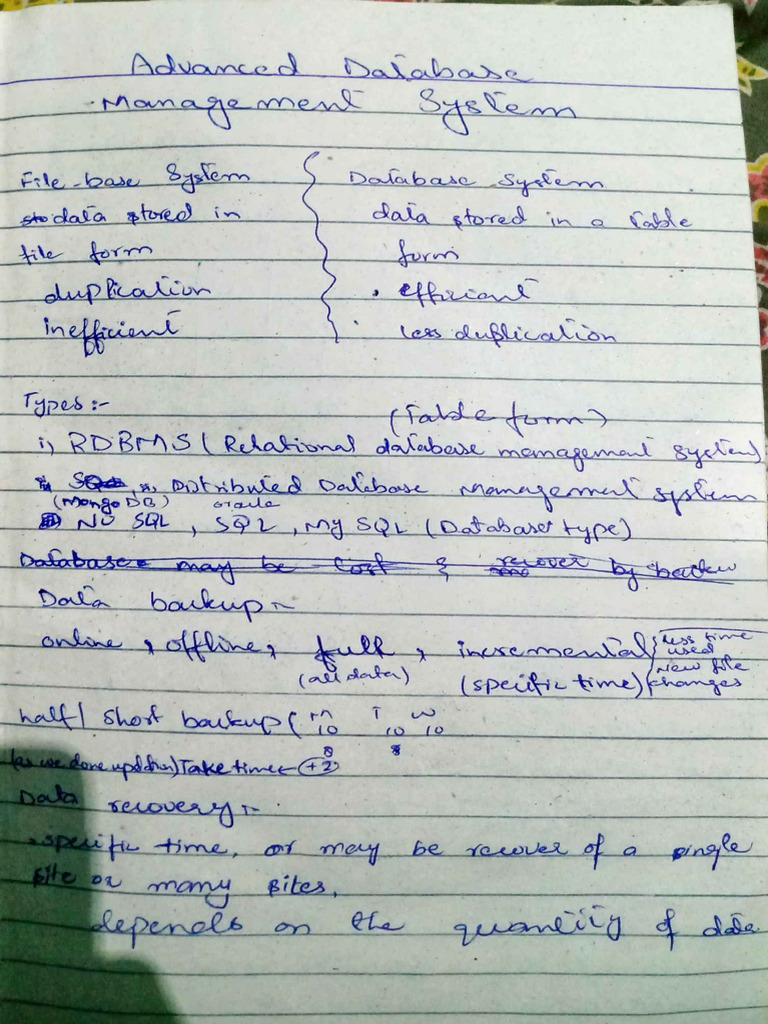 Advanced Database
Management System
File-base System
data stored in
file form
duplication
inefficient
Database System
data stored in a table
form
efficient
less duplication
Types:-
(Table form)
i, RDBMS (Relational database management system)
Distributed Database Management system
(Mongo DB) oracle
No SQL, SQL, My SQL (Database type)
Database may be lost & recover by
Data backup:-
online, offline, full, incremental
less time
used
new file
changes
(all data) (specific time)
half/ short backup ( M T W
10 10 10
(as we done updation) Take time +2
Data recovery:-
specific time, or may be recover of a single
site or many sites.
depends on the quantity of data